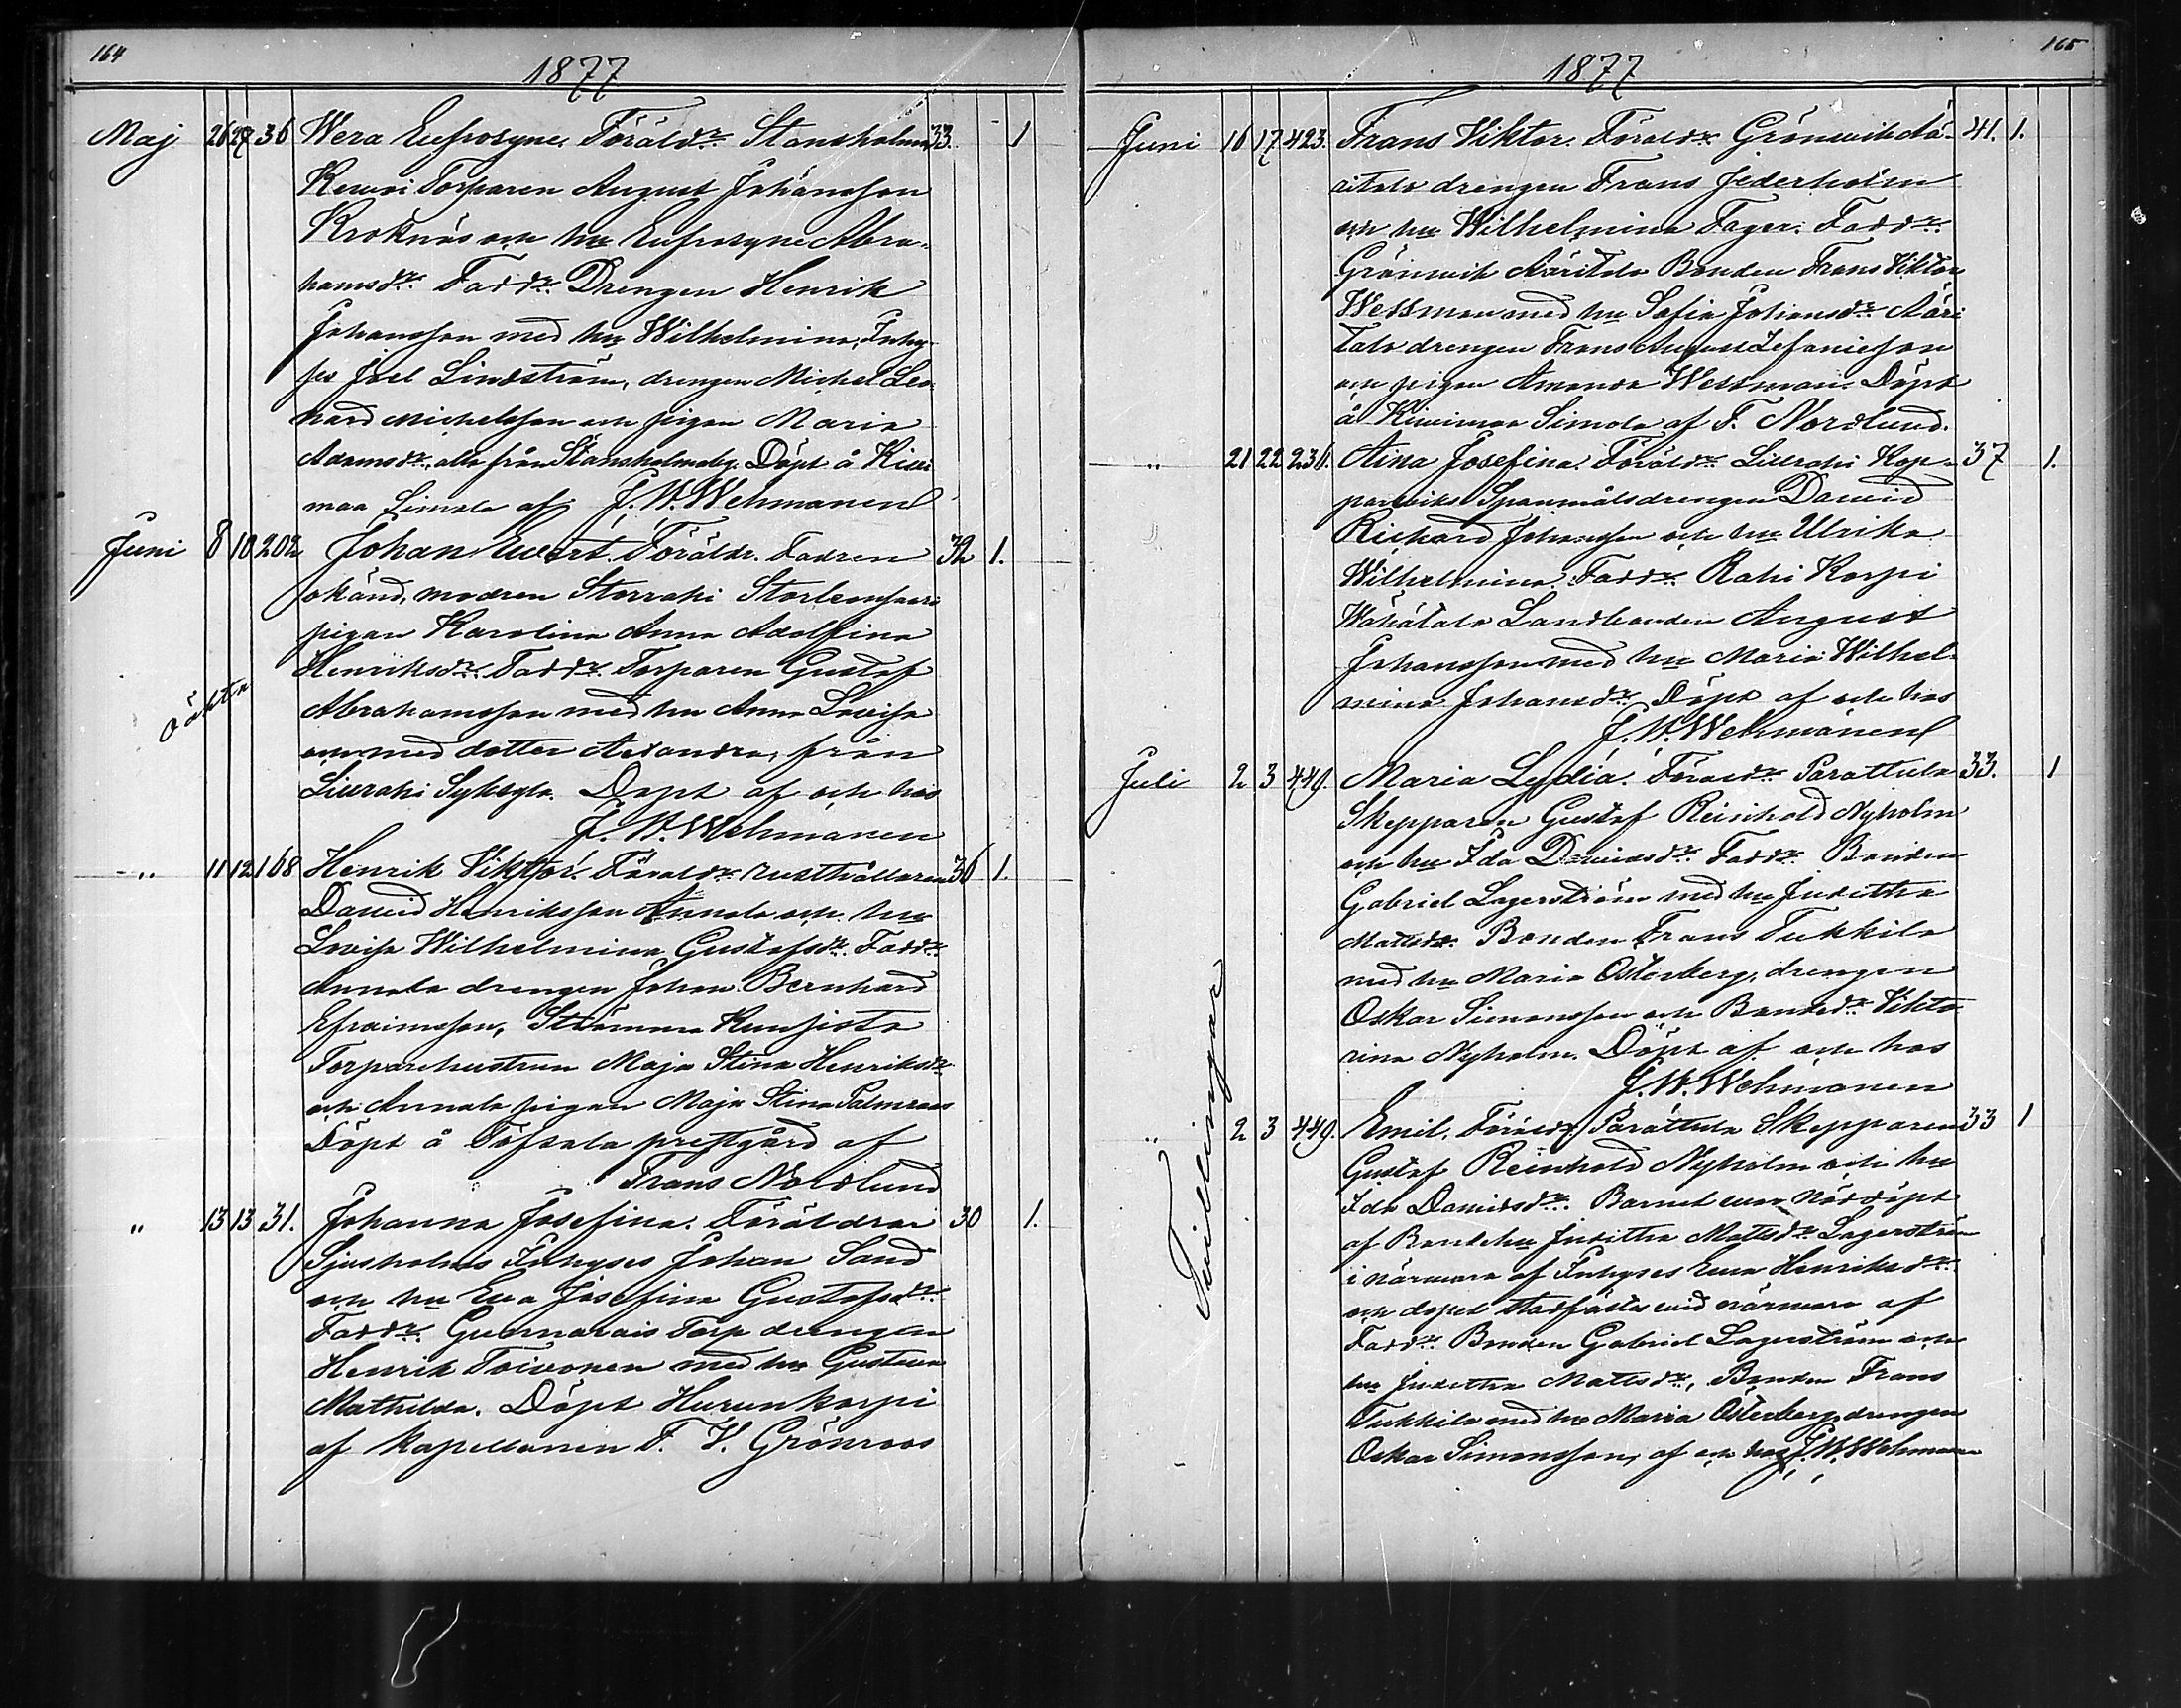 164
1877
Maj 26 27 36 Wera Eufrosyne. Föräldr. Stansholms 33. 1
Torparen August Johansson
Kroknäs och hu Eufrosyne Abra-
hamsdr. Faddr. Drengen Henrik
Johansson med hu Wilhelmina, Inhy-
ses Joel Lindström, drengen Michel Leo-
nard Michelsson och pigan Maria
Adamsdr., alla från Stansholmsby. Döpt å Kivi-
maa Simola af J. W. Wehmanen
Juni 8 10 202 Johan Evert. Föräldr. Fadren 32 1.
okänd, modren Storrahi
pigan Karolina Anna Adolfina
Henriksdr. Faddr. Torparen Gustaf
oäkta
Abrahamsson med hu Anna Lovisa
och med dotter Alexandra, från
Lillrahi Döpt af och hos
J. W. Wehmanen
" 11 12 168 Henrik Viktor. Föräldr. rusthållaren 36 1.
David Henriksson Annala och hu
Lovisa Wilhelmina Gustafsdr. Faddr.
Annala drengen Johan Bernhard
Efraimsson, Strömma
Torparehustrun Maja Stina Henriksdr
och Annala pigan Maja Stina Palmroos
Döpt å Töfsala prestgård af
Frans Nordlund
" 13 13 31. Johanna Josefina. Föräldrar 30 1.
Inhyses Johan Sand
och hu Eva Josefina Gustafsdr.
Faddr. Torp drengen
Henrik Toivonen med hu Gustava
Mathilda. Döpt Hurunkorpi
af kapellanen F. V. Grönroos
165
1877
Juni 16 17 423. Frans Viktor. Föräldr. Grönvik Ää- 41. 1.
ritalo drengen Frans Jederholm
och hu Wilhelmina Fager. Faddr.
Grönvik Ääritalo Bonden Frans Viktor
Wessman med hu Sofia Johansdr. Ääri-
talo drengen Frans August Zefaniesson
och pigan Amanda Wessman. Döpt
å Kivimaa Simola af F. Nordlund.
" 21 22 236. Aina Josefina. Föräldr. Lillrahi Kop- 37 1.
parviks Spanmålsdrengen David
Richard Johansson och hu Ulrika
Wilhelmina. Faddr. Rahi Korpi
Wähätalo Landbonden August
Johansson med hu Maria Wilhel-
mina Johansdr. Döpt af och hos
J. W. Wehmanen
Juli 2 3 449. Maria Lydia. Föräldr. Parattula 33. 1
Skepparen Gustaf Reinhold Nyholm
och hu Ida Davidsdr. Faddr. Bonden
Gabriel Lagerström med hu Juditha
Mattsdr. Bonden Frans Tukkila
med hu Maria Österberg, drengen
Oskar Simonsson och Bondedr. Vikto-
rina Nyholm. Döpt af och hos
J. W. Wehmanen
Tvillingar
" 2 3 449. Emil. Föräldr. Parattula Skepparen 33 1
Gustaf Reinhold Nyholm och hu
Ida Davidsdr. Barnet var nöddöpt
af Bondehu Juditha Mattsdr. Lagerström
i närvaro af Inhyses Eva Henriksdr.
och dopet stadfästes vid närvaro af
Faddr. Bonden Gabriel Lagerström och
hu Juditha Mattsdr., Bonden Frans
Tukkila med hu Maria Österberg, drengen
Oskar Simonsson, af och hos J. W. Wehmanen